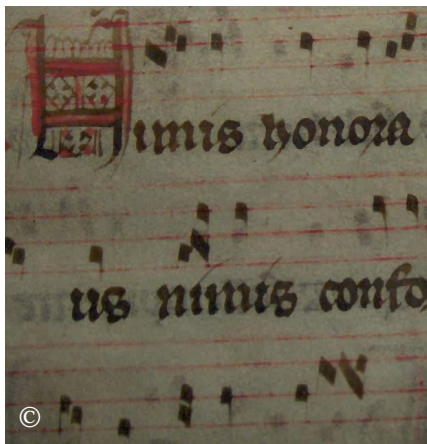 Nimis honora
us nimis confo
©